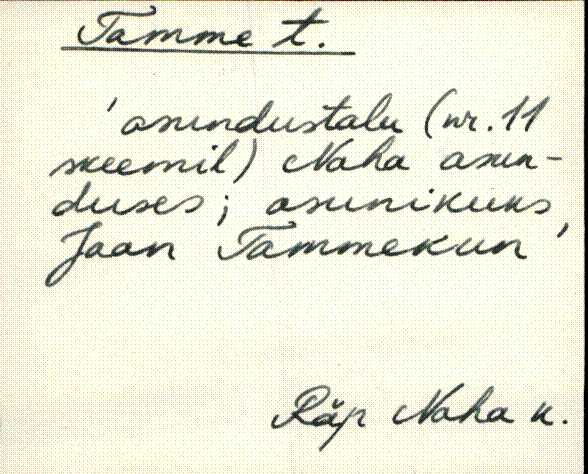 Tamme t.
'asundustalu (nr. 11
skeemil) Naha asun-
duses; asunikuks
Jaan Tammekun'
Räp Naha k.